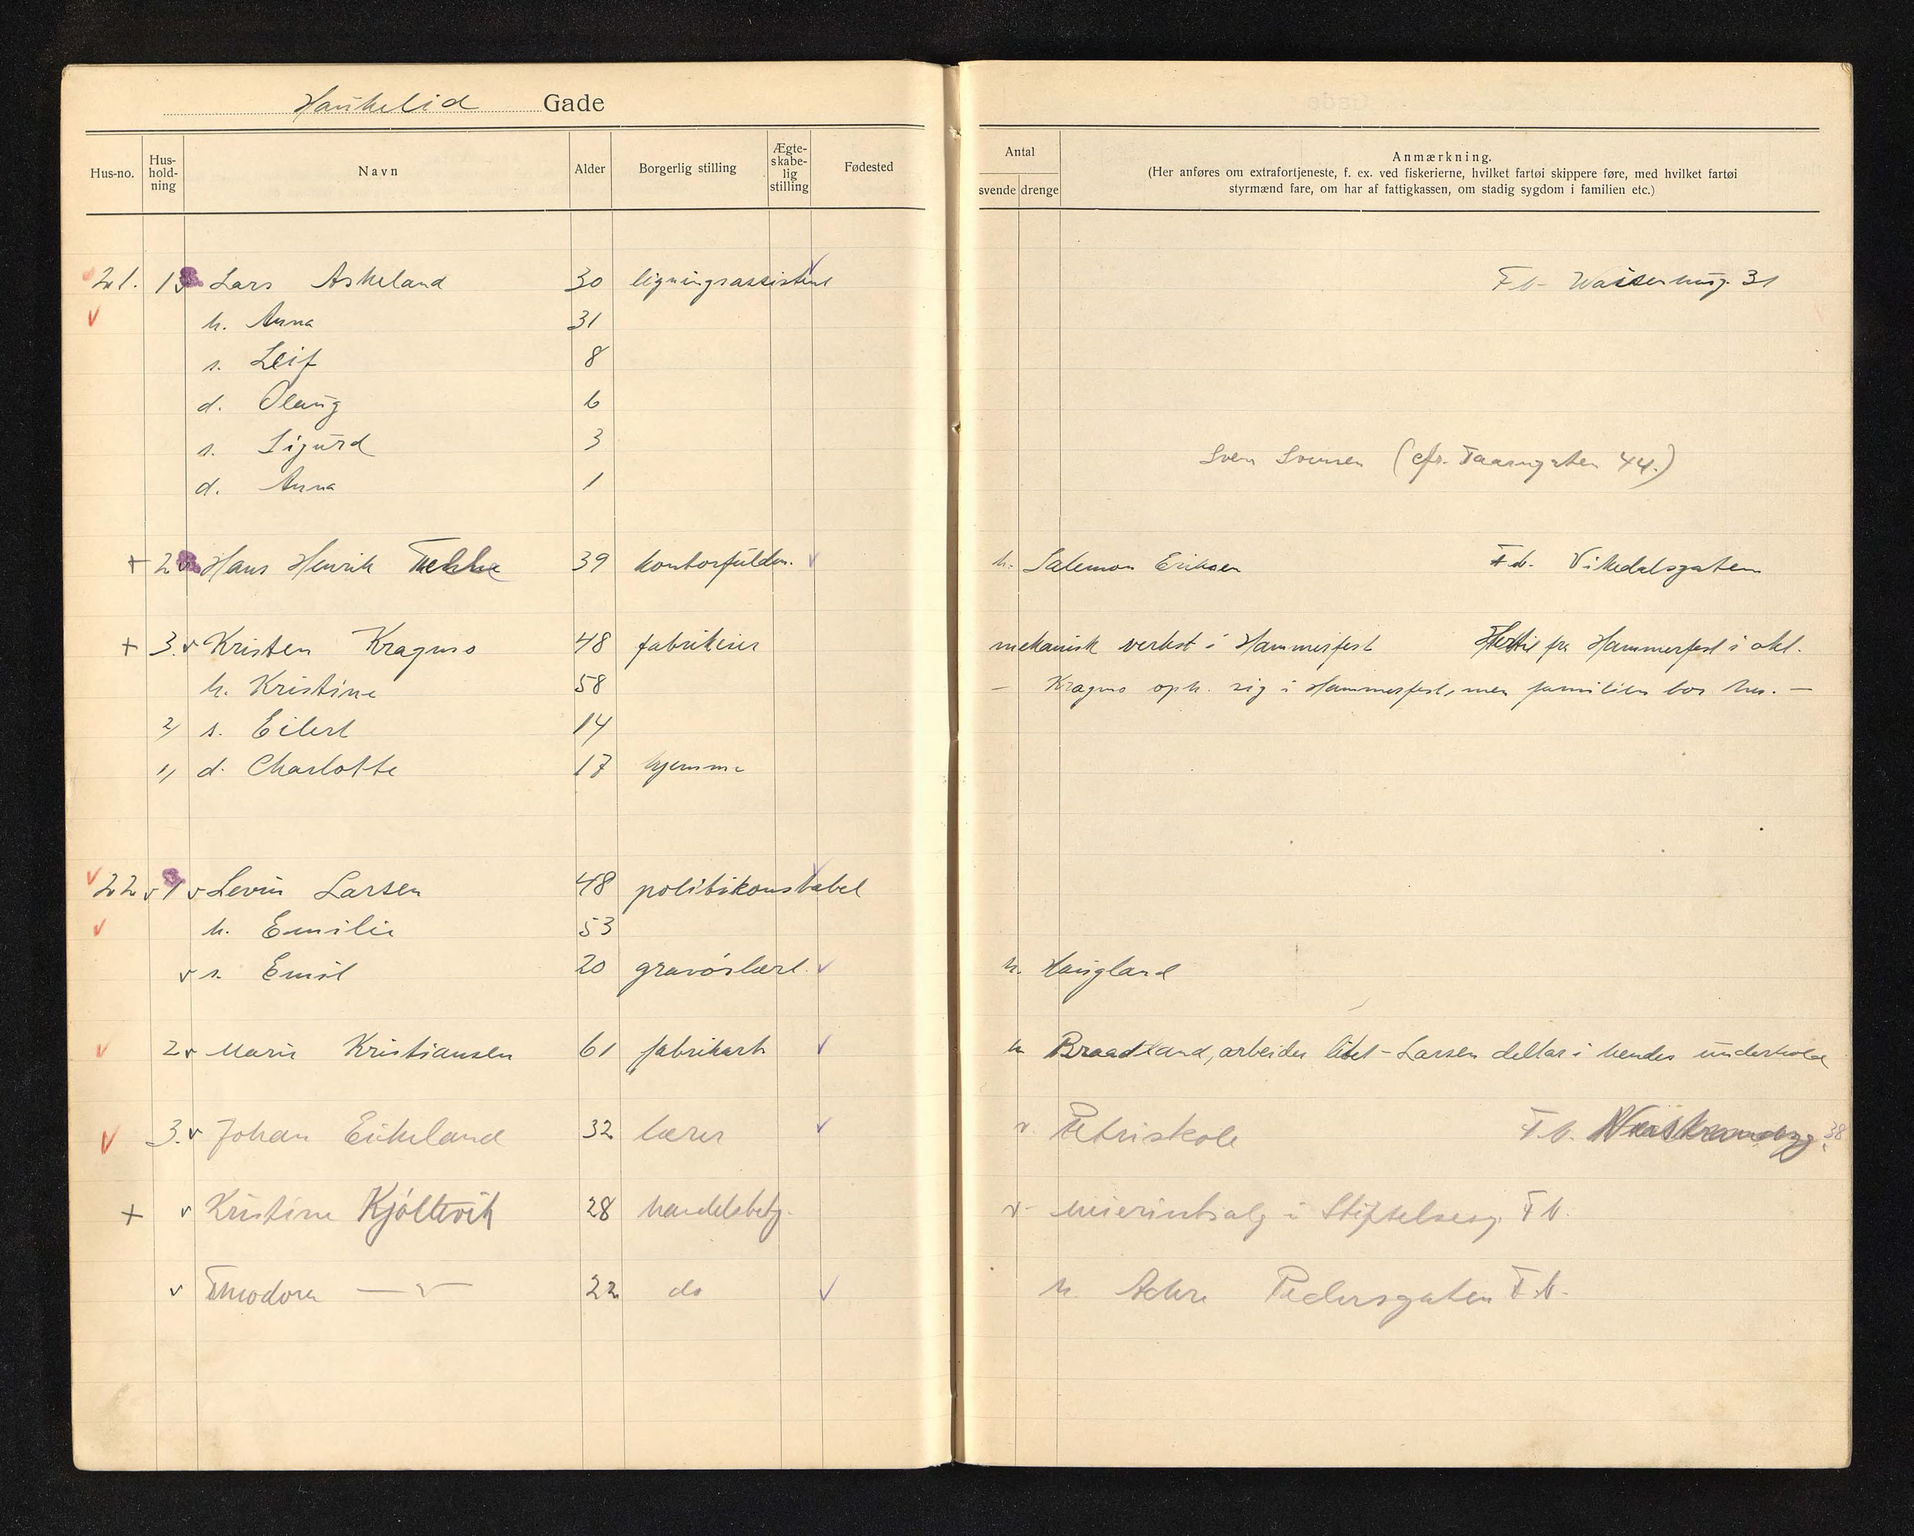 Haukelid Gade
Hus-no. Hus-hold-ning Navn Alder Borgerlig stilling Ægte-skabe-lig stilling Fødested
Antal svende drenge Anmærkning.
(Her anføres om extrafortjeneste, f. ex. ved fiskerierne, hvilket fartøi skippere føre, med hvilket fartøi
styrmænd fare, om har af fattigkassen, om stadig sygdom i familien etc.)
21. 1 Lars Askeland 30 ligningsassistent F b. 31
h. Anna 31
s. Leif 8
d. Olaug 6
s. Sigurd 3
Sven Svensen (cfr. Taarngaten 44.)
d. Anna 1
+ 2 Hans Henrik 39 kontorfuldm. h. Salemon Eriksen F b. Vikedalsgaten
+ 3. v Kristen Kragmo 48 fabrikeier mekanisk verkst i Hammerfest Hertil fra Hammerfest i okt.
h. Kristine 58 — Kragmo oph. sig i Hammerfest, men familien bor her. —
2) s. Eilert 14
1) d. Charlotte 17 hjemme
22 v 1 v Levin Larsen 48 politikonstabel
h. Emilie 53
v s. Emil 20 gravørlærl. h. Haugland
2 v Marie Kristiansen 61 fabrikarb h Braadland, arbeider litet - Larsen deltar i hendes underhold
3. v Johan Eikeland 32 lærer v. Petriskole F b. 38
+ v Kristine Kjøltevik 28 handelsbetj. v. meieriutsalg i Stiftelsesg. F b.
v Theodora — v — 22 do h. Aehre Pedersgaten F. b.